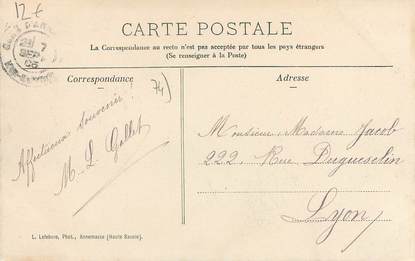 12€
CARTE POSTALE
La Correspondance au recto n'est pas acceptée par tous les pays étrangers
(Se renseigner à la Poste)
Correspondance
Adresse
74)
Affectueux souvenir !
M. L. Gollet
Monsieur, Madame Jacob
222, Rue Duguesclin
Lyon
L. Lefebvre, Phot., Annemasse (Haute Savoie).